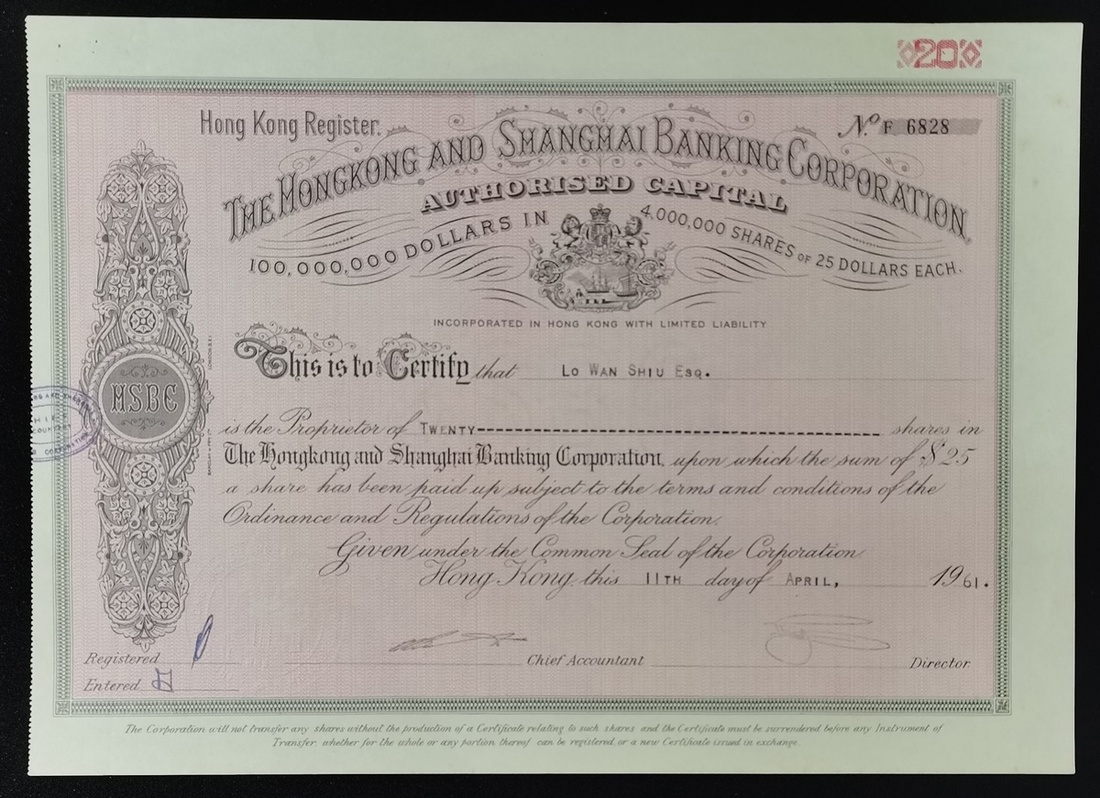 20
Hong Kong Register.
No. F 6828
THE HONGKONG AND SHANGHAI BANKING CORPORATION.
AUTHORISED CAPITAL
100,000,000 DOLLARS IN 4,000,000 SHARES OF 25 DOLLARS EACH.
INCORPORATED IN HONG KONG WITH LIMITED LIABILITY
This is to Certify that LO WAN SHIU ESQ.
HSBC
is the Proprietor of TWENTY shares in
The Hongkong and Shanghai Banking Corporation, upon which the sum of $25
a share has been paid up subject to the terms and conditions of the
Ordinance and Regulations of the Corporation.
Given under the Common Seal of the Corporation
Hong Kong this 11TH day of APRIL, 1961.
Registered
Chief Accountant
Director
Entered
The Corporation will not transfer any shares without the production of a Certificate relating to such shares and the Certificate must be surrendered before any Instrument of
Transfer whether for the whole or any portion thereof can be registered or a new Certificate issued in exchange.